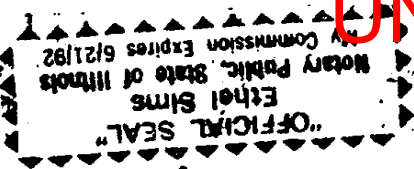 "OFFICIAL SEAL"
Ethel Sims
Notary Public, State of Illinois
My Commission Expires 6/21/92
UN